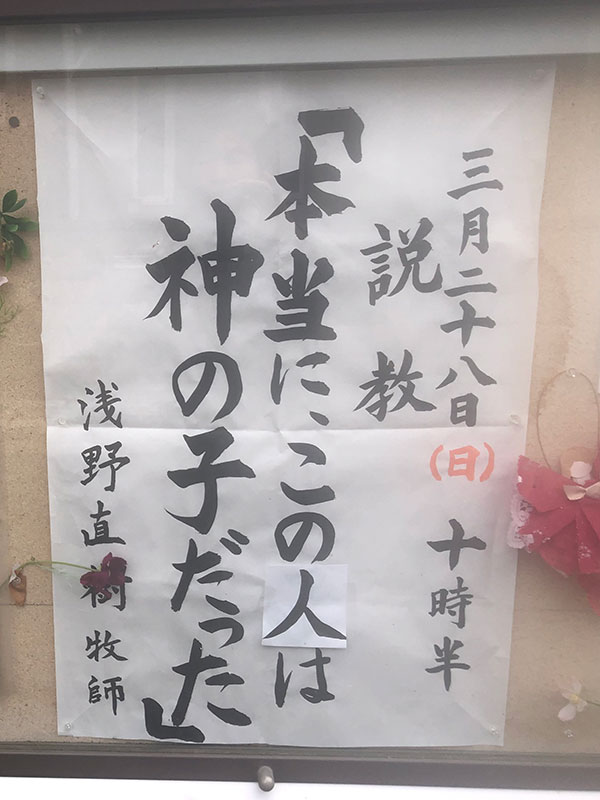 三月二十八日(日) 十時半
説教
「本当に、この人は
神の子だった」
浅野直樹牧師